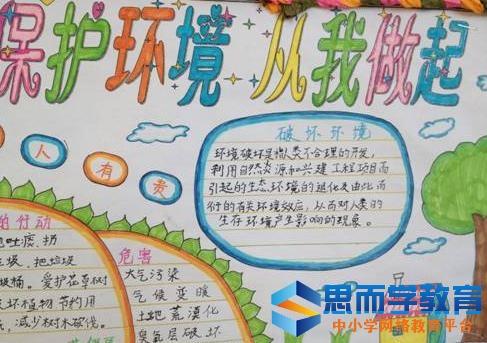 保护环境 从我做起
人有责
破坏环境
环境破坏是指人类不合理的开发,
利用自然资源和兴建工程项目而
引起的生态环境的退化及由此而
衍的有关环境效应,从而对人类的
生存环境产生影响的现象。
的行动
地吐痰,扔
垃圾、把垃圾
圾桶。爱护花草树
坏植物节约用
减少树木砍伐。
危害
大气污染
气候变暖
土地荒漠化
臭氧层破坏
思而学教育
中小学网络教育平台